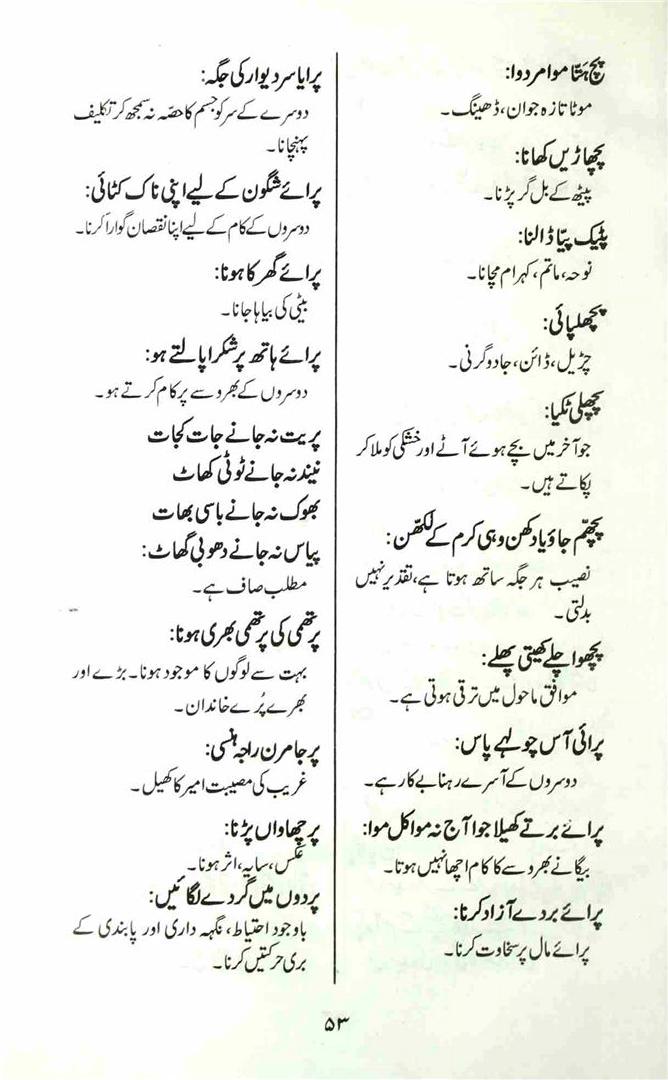 پچ ہتّا موا مردوا:
موٹا تازہ جوان، ڈھینگ۔
پچھاڑیں کھانا:
پیٹھ کے بل گر پڑنا۔
پٹیک پیّا ڈالنا:
نوحہ، ماتم، کہرام مچانا۔
پچھلپائی:
چڑیل، ڈائن، جادوگرنی۔
پچھلی ٹکیا:
جو آخر میں بچے ہوئے آٹے اور خشکی کو ملا کر
پکاتے ہیں۔
پچھّم جاؤ یا دکھن وہی کرم کے لکھّن:
نصیب ہر جگہ ساتھ ہوتا ہے، تقدیر نہیں
بدلتی۔
پچھوا چلے کھیتی پھلے:
موافق ماحول میں ترقی ہوتی ہے۔
پرائی آس چولہے پاس:
دوسروں کے آسرے رہنا بے کار ہے۔
پرائے برتے کھیلا جوا آج نہ موا کل موا:
بیگانے بھروسے کا کام اچھا نہیں ہوتا۔
پرائے بردے آزاد کرنا:
پرائے مال پر سخاوت کرنا۔
پرایا سر دیوار کی جگہ:
دوسرے کے سر کو جسم کا حصّہ نہ سمجھ کر تکلیف
پہنچانا۔
پرائے شگون کے لیے اپنی ناک کٹائی:
دوسروں کے کام کے لیے اپنا نقصان گوارا کرنا۔
پرائے گھر کا ہونا:
بیٹی کی بیاہا جانا۔
پرائے ہاتھ پر شکرا پالتے ہو:
دوسروں کے بھروسے پر کام کرتے ہو۔
پریت نہ جانے جات کجات
نیند نہ جانے ٹوٹی کھاٹ
بھوک نہ جانے باسی بھات
پیاس نہ جانے دھوبی گھاٹ:
مطلب صاف ہے۔
پرتھمی کی پرتھمی بھری ہونا:
بہت سے لوگوں کا موجود ہونا۔ بڑے اور
بھرے پُرے خاندان۔
پرجا مرن راجہ ہنسی:
غریب کی مصیبت امیر کا کھیل۔
پرچھاواں پڑنا:
عکس، سایہ، اثر ہونا۔
پردوں میں گردے لگائیں:
باوجود احتیاط، نگہہ داری اور پابندی کے
بری حرکتیں کرنا۔
۵۳